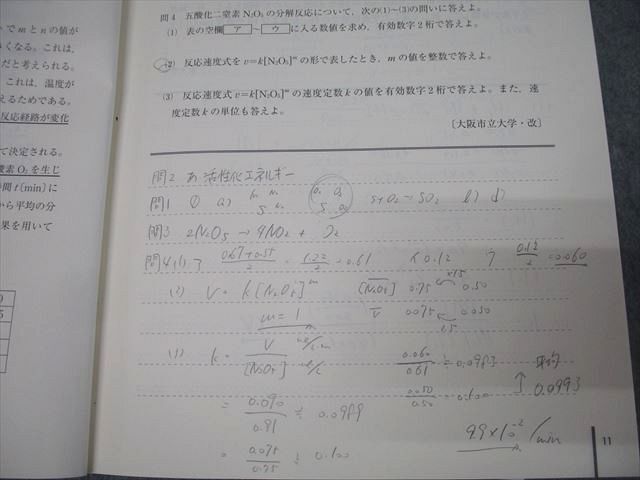 でmとnの値が
くなる。これは,
だと考えられる。
これは,温度が
えるためである。
反応経路が変化
て決定される。
酸素O₂を生じ
間t〔min〕に
から平均の分
果を用いて
問4 五酸化二窒素N₂O₅の分解反応について,次の(1)~(3)の問いに答えよ。
(1) 表の空欄 ア ~ ウ に入る数値を求め,有効数字2桁で答えよ。
(2) 反応速度式をv=k[N₂O₅]ᵐの形で表したとき,mの値を整数で答えよ。
(3) 反応速度式v=k[N₂O₅]ᵐの速度定数kの値を有効数字2桁で答えよ。また,速
度定数kの単位も答えよ。
〔大阪市立大学・改〕
問2 あ 活性化エネルギー
問1 ① a)
問3 2N₂O₅→4NO₂+O₂
問4(1)ア (0.67+0.55)/2 = 1.22/2 = 0.61 イ 0.12 ウ 0.12/2 = 0.060
(2) V=k[N₂O₅]ᵐ [N₂O₅] 0.75 0.50
m=1 v 0.075 0.050
k= V/[N₂O₅] 0.060/0.61 ≒ 0.0983 平均
0.050/0.50 = 0.100 ↑ 0.0993
= 0.090/0.91 ≒ 0.0989
= 0.075/0.75 ≒ 0.100 9.9×10⁻² /min
11